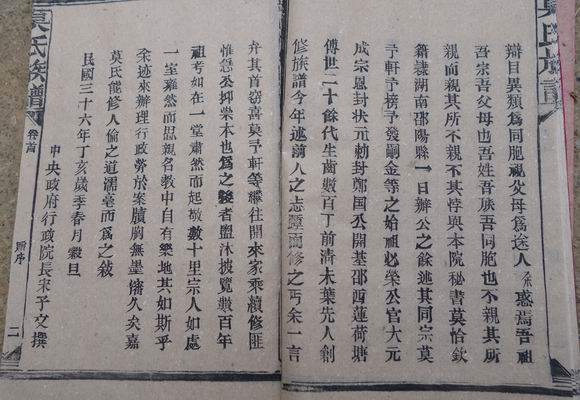 辯目異類為同胞視父母為途人余惑焉吾祖
吾宗吾父母也吾姓吾族吾同胞也不親其所
親而親其所不親不其悖與本院秘書莫恰欽
籍隸湖南邵陽縣一日辦公之餘述其同宗莫
予軒予榜予發嗣金等之始祖必榮公官大元
成宗恩封狀元勅封鄭國公開基邵西蓮荷塘
傳世二十餘代生齒數百丁前清末葉先人創
修族譜今年述前人之志踵而修之丐余一言
弁其首竊喜莫予軒等繼往開來家乘續修匪
惟慰公抑榮本也為之
者盥沐披覽數百年
祖考如在一堂肅然而起敬數十里宗人如處
一室雍然而思親名教中自有樂地其如斯乎
余邇來辦理行政勞於案牘胸無墨瀋久矣嘉
莫氏能修人倫之道濡毫而為之敘
民國三十六年丁亥歲季春月穀旦
中央政府行政院長宋子文撰
莫氏族譜
卷首
贈序
二
莫氏族譜